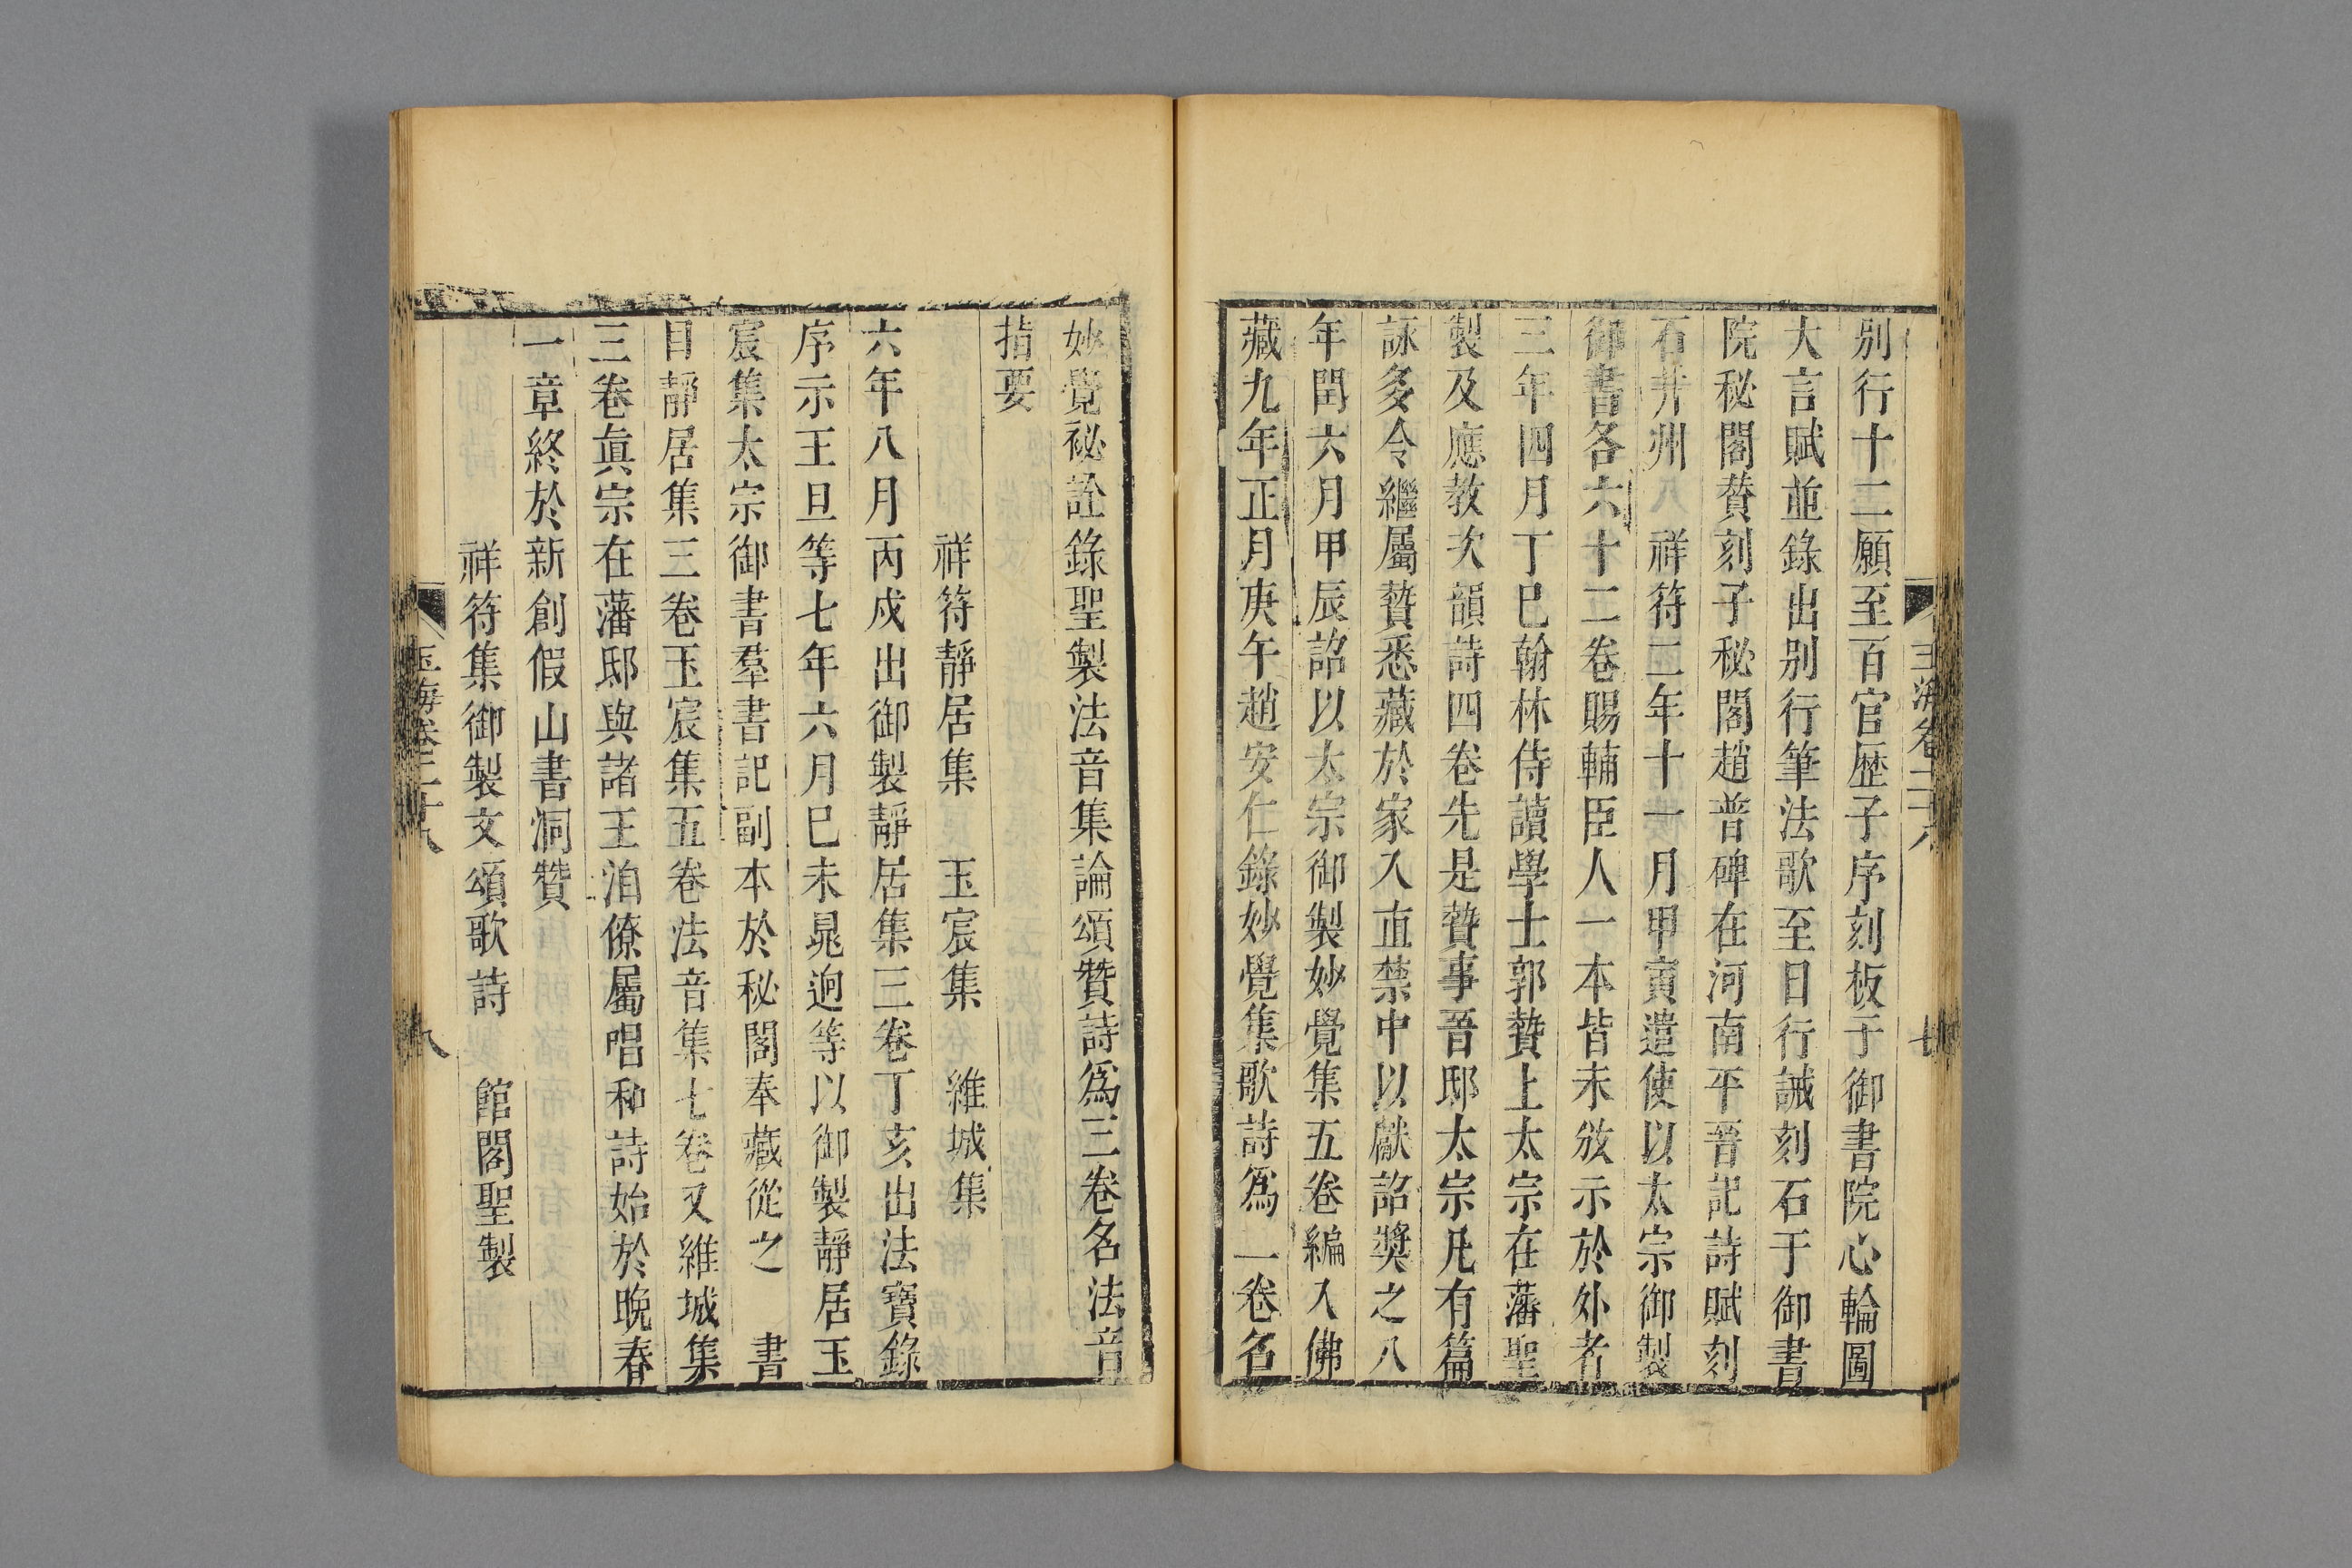 别行十二願至百官歷子序刻板于御書院心輪圖
大言賦並錄出别行筆法歌至日行誡刻石于御書
院秘閣贊刻子秘閣趙普碑在河南平晉記詩賦刻
石并州 祥符二年十一月甲寅遣使以太宗御製
御書各六十二卷賜輔臣人一本皆未放示於外者
三年四月丁巳翰林侍讀學士郭贄上太宗在藩聖
製及應教次韻詩四卷先是贄事晉邸太宗凡有篇
詠多令繼屬贄悉藏於家入直禁中以獻詔奬之八
年閏六月甲辰詔以太宗御製妙覺集五卷編入佛
藏九年正月庚午趙安仁錄妙覺集歌詩爲一卷名
玉海卷二十八
七
妙覺祕詮錄聖製法音集論頌贊詩爲三卷名法音
指要
祥符靜居集 玉宸集 維城集
六年八月丙戌出御製靜居集三卷丁亥出法寶錄
序示王旦等七年六月巳未晁迥等以御製靜居玉
宸集太宗御書羣書記副本於秘閣奉藏從之 書
目靜居集三卷玉宸集五卷法音集七卷又維城集
三卷眞宗在藩邸與諸王洎僚屬唱和詩始於晚春
一章終於新創假山書洞贊
祥符集御製文頌歌詩 館閣聖製
玉海卷二十八
八